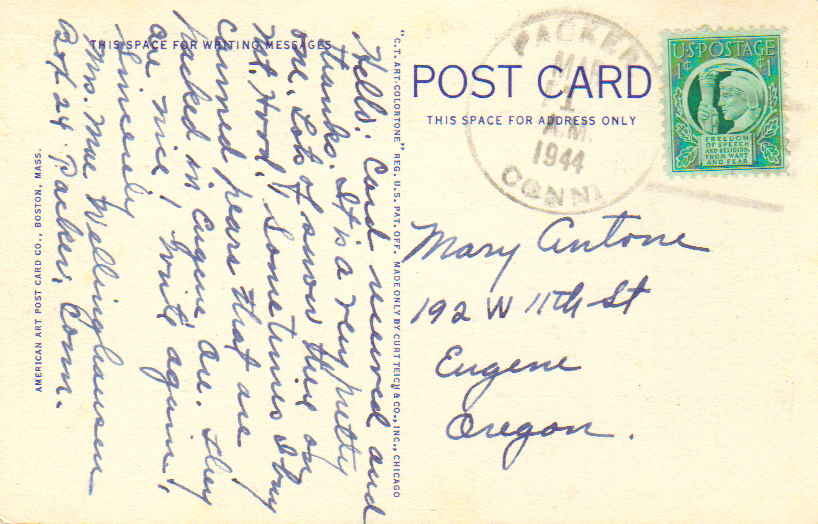 THIS SPACE FOR WRITING MESSAGES
Hello! Card received and
thanks. It is a very pretty
one. Lots of snow there on
Mt. Hood. Sometimes I buy
canned pears that are
packed in Eugene Ore. They
are nice! Write again!
Sincerely
Mrs. Mae Wellinghausen
Box 24 Packer, Conn.
AMERICAN ART POST CARD CO., BOSTON, MASS.
"C.T. ART-COLORTONE" REG. U.S. PAT. OFF. MADE ONLY BY CURT TEICH & CO., INC., CHICAGO
POST CARD
THIS SPACE FOR ADDRESS ONLY
PACKER
MAR
A.M.
1944
CONN.
U·S·POSTAGE
1¢ ¢1
FREEDOM
OF SPEECH
AND RELIGION,
FROM WANT
AND FEAR
Mary Antone
192 W 11th St
Eugene
Oregon.